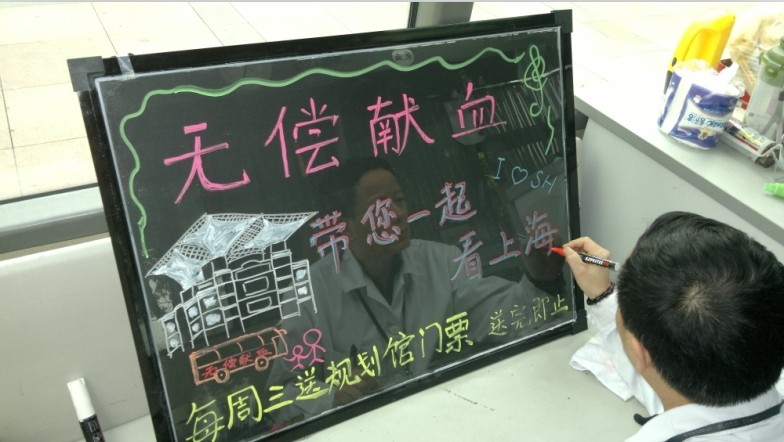 无偿献血
I ♡ SH
带您一起
看上海
无偿献血
每周三送规划馆门票
送完即止